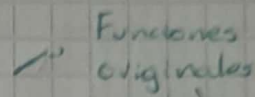 Funciones
originales